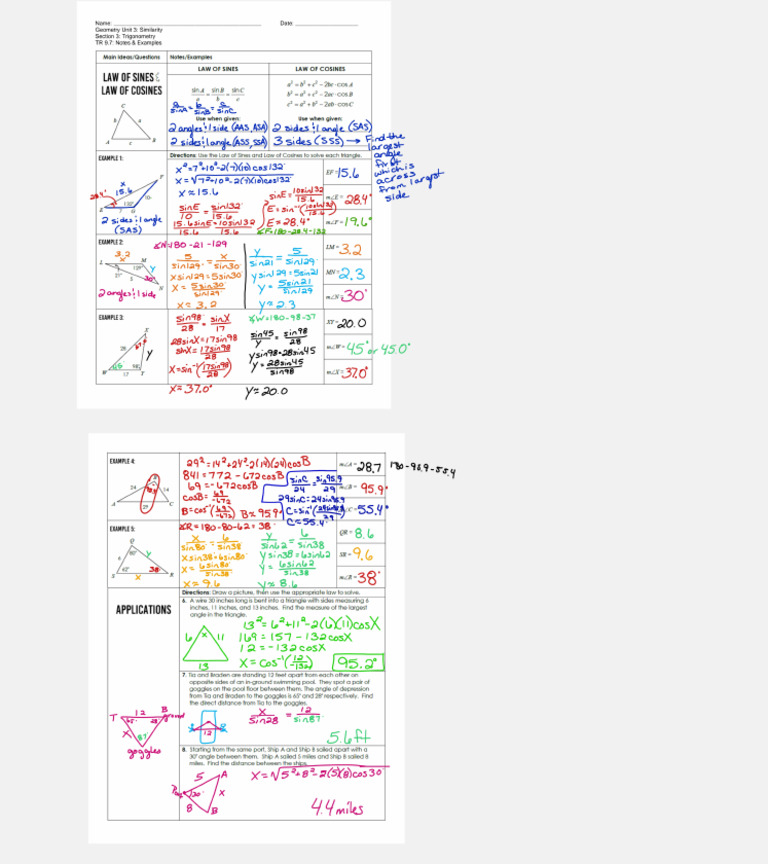 Name: ____________ Date: ____________
Geometry Unit 3: Similarity
Section 3: Trigonometry
TR 9.7: Notes & Examples
Main Ideas/Questions Notes/Examples
LAW OF SINES &
LAW OF COSINES
LAW OF SINES
sin A / a = sin B / b = sin C / c
a/sinA = b/sinB = c/sinC
Use when given:
2 angles & 1 side (AAS, ASA)
2 sides & 1 angle (ASS, SSA)
LAW OF COSINES
a² = b² + c² − 2bc·cos A
b² = a² + c² − 2ac·cos B
c² = a² + b² − 2ab·cos C
Use when given:
2 sides & 1 angle (SAS)
3 sides (SSS) → Find the
largest
angle
first
which is
across
from largest
side
EXAMPLE 1:
Directions: Use the Law of Sines and Law of Cosines to solve each triangle.
x
15.6
28.4°
2 sides & 1 angle
(SAS)
x² = 7² + 10² − 2(7)(10)cos132
x = √7² + 10² − 2(7)(10)cos132
x ≈ 15.6
sinE/10 = sin132/15.6
15.6sinE = 10sin132
15.6 15.6
sinE = 10sin132/15.6
E = sin⁻¹(10sin132/15.6)
E = 28.4°
∡F = 180 − 28.4 − 132
EF = 15.6
m∠E = 28.4°
m∠F = 19.6°
EXAMPLE 2:
3.2
L M
129°
21° 5 30°
y
N
2 angles & 1 side
∡N = 180 − 21 − 129
5/sin129 = x/sin30
x sin129 = 5sin30
x = 5sin30/sin129
x = 3.2
y/sin21 = 5/sin129
y sin129 = 5sin21
y = 5sin21/sin129
y = 2.3
LM = 3.2
MN = 2.3
m∠N = 30°
EXAMPLE 3:
X
28 y
98°
W 17 Y
sin98/28 = sinX/17
28sinX = 17sin98
sinX = 17sin98/28
X = sin⁻¹(17sin98/28)
X = 37.0°
∡W = 180 − 98 − 37
sin45/y = sin98/28
y sin98 = 28sin45
y = 28sin45/sin98
y = 20.0
XY = 20.0
m∠W = 45° or 45.0°
m∠X = 37.0°
EXAMPLE 4:
24 14
A C
29² = 14² + 24² − 2(14)(24)cosB
841 = 772 − 672cosB
69 = −672cosB
cosB = 69/−672
B = cos⁻¹(69/−672) B ≈ 95.9°
sinC/24 = sin95.9/29
29sinC = 24sin95.9
C = sin⁻¹(24sin95.9/29)
C = 55.4°
m∠A = 28.7 180 − 95.9 − 55.4
m∠B = 95.9°
m∠C = 55.4°
EXAMPLE 5:
Q
80°
6 y
62° 38
S x R
∡R = 180 − 80 − 62 = 38
x/sin80 = 6/sin38
x sin38 = 6sin80
x = 6sin80/sin38
x = 9.6
y/sin62 = 6/sin38
y sin38 = 6sin62
y = 6sin62/sin38
y ≈ 8.6
QR = 8.6
SR = 9.6
m∠R = 38°
APPLICATIONS
Directions: Draw a picture, then use the appropriate law to solve.
6. A wire 30 inches long is bent into a triangle with sides measuring 6
inches, 11 inches, and 13 inches. Find the measure of the largest
angle in the triangle.
6 x 11
13
13² = 6² + 11² − 2(6)(11)cosX
169 = 157 − 132cosX
12 = −132cosX
X = cos⁻¹(12/−132) 95.2°
7. Tia and Braden are standing 12 feet apart from each other on
opposite sides of an in-ground swimming pool. They spot a pair of
goggles on the pool floor between them. The angle of depression
from Tia and Braden to the goggles is 65° and 28° respectively. Find
the direct distance from Tia to the goggles.
T 12 B
ground
65° 28
x 87°
goggles
12
x/sin28 = 12/sin87
5.6ft
8. Starting from the same port, Ship A and Ship B sailed apart with a
30° angle between them. Ship A sailed 5 miles and Ship B sailed 8
miles. Find the distance between the ships.
5 A
30° x
8 B
x = √5² + 8² − 2(5)(8)cos30
4.4 miles